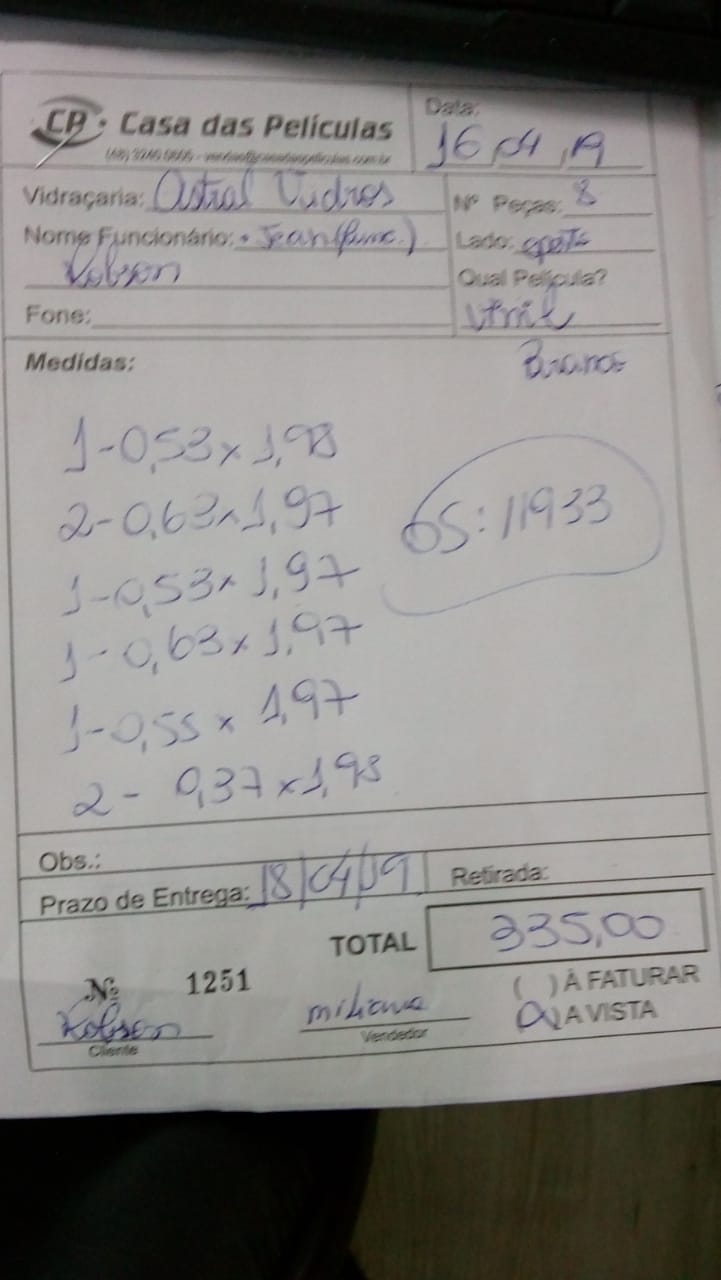 CP Casa das Películas
Data:
16,04,19
Vidraçaria: Astral Vidros
Nº Peças: 8
Nome Funcionário: Jean (func.)
Robson
Lado:
Qual Película?
Fone:
Branco
Medidas:
1-0,53x1,98
2-0,63x1,97
OS:11933
1-0,53x1,97
1-0,63x1,97
1-0,55x1,97
2-0,37x1,98
Obs.:
Prazo de Entrega: 18/04/19
Retirada:
TOTAL 335,00
Nº 1251
( ) À FATURAR
(X) A VISTA
Robson
Cliente
Vendedor